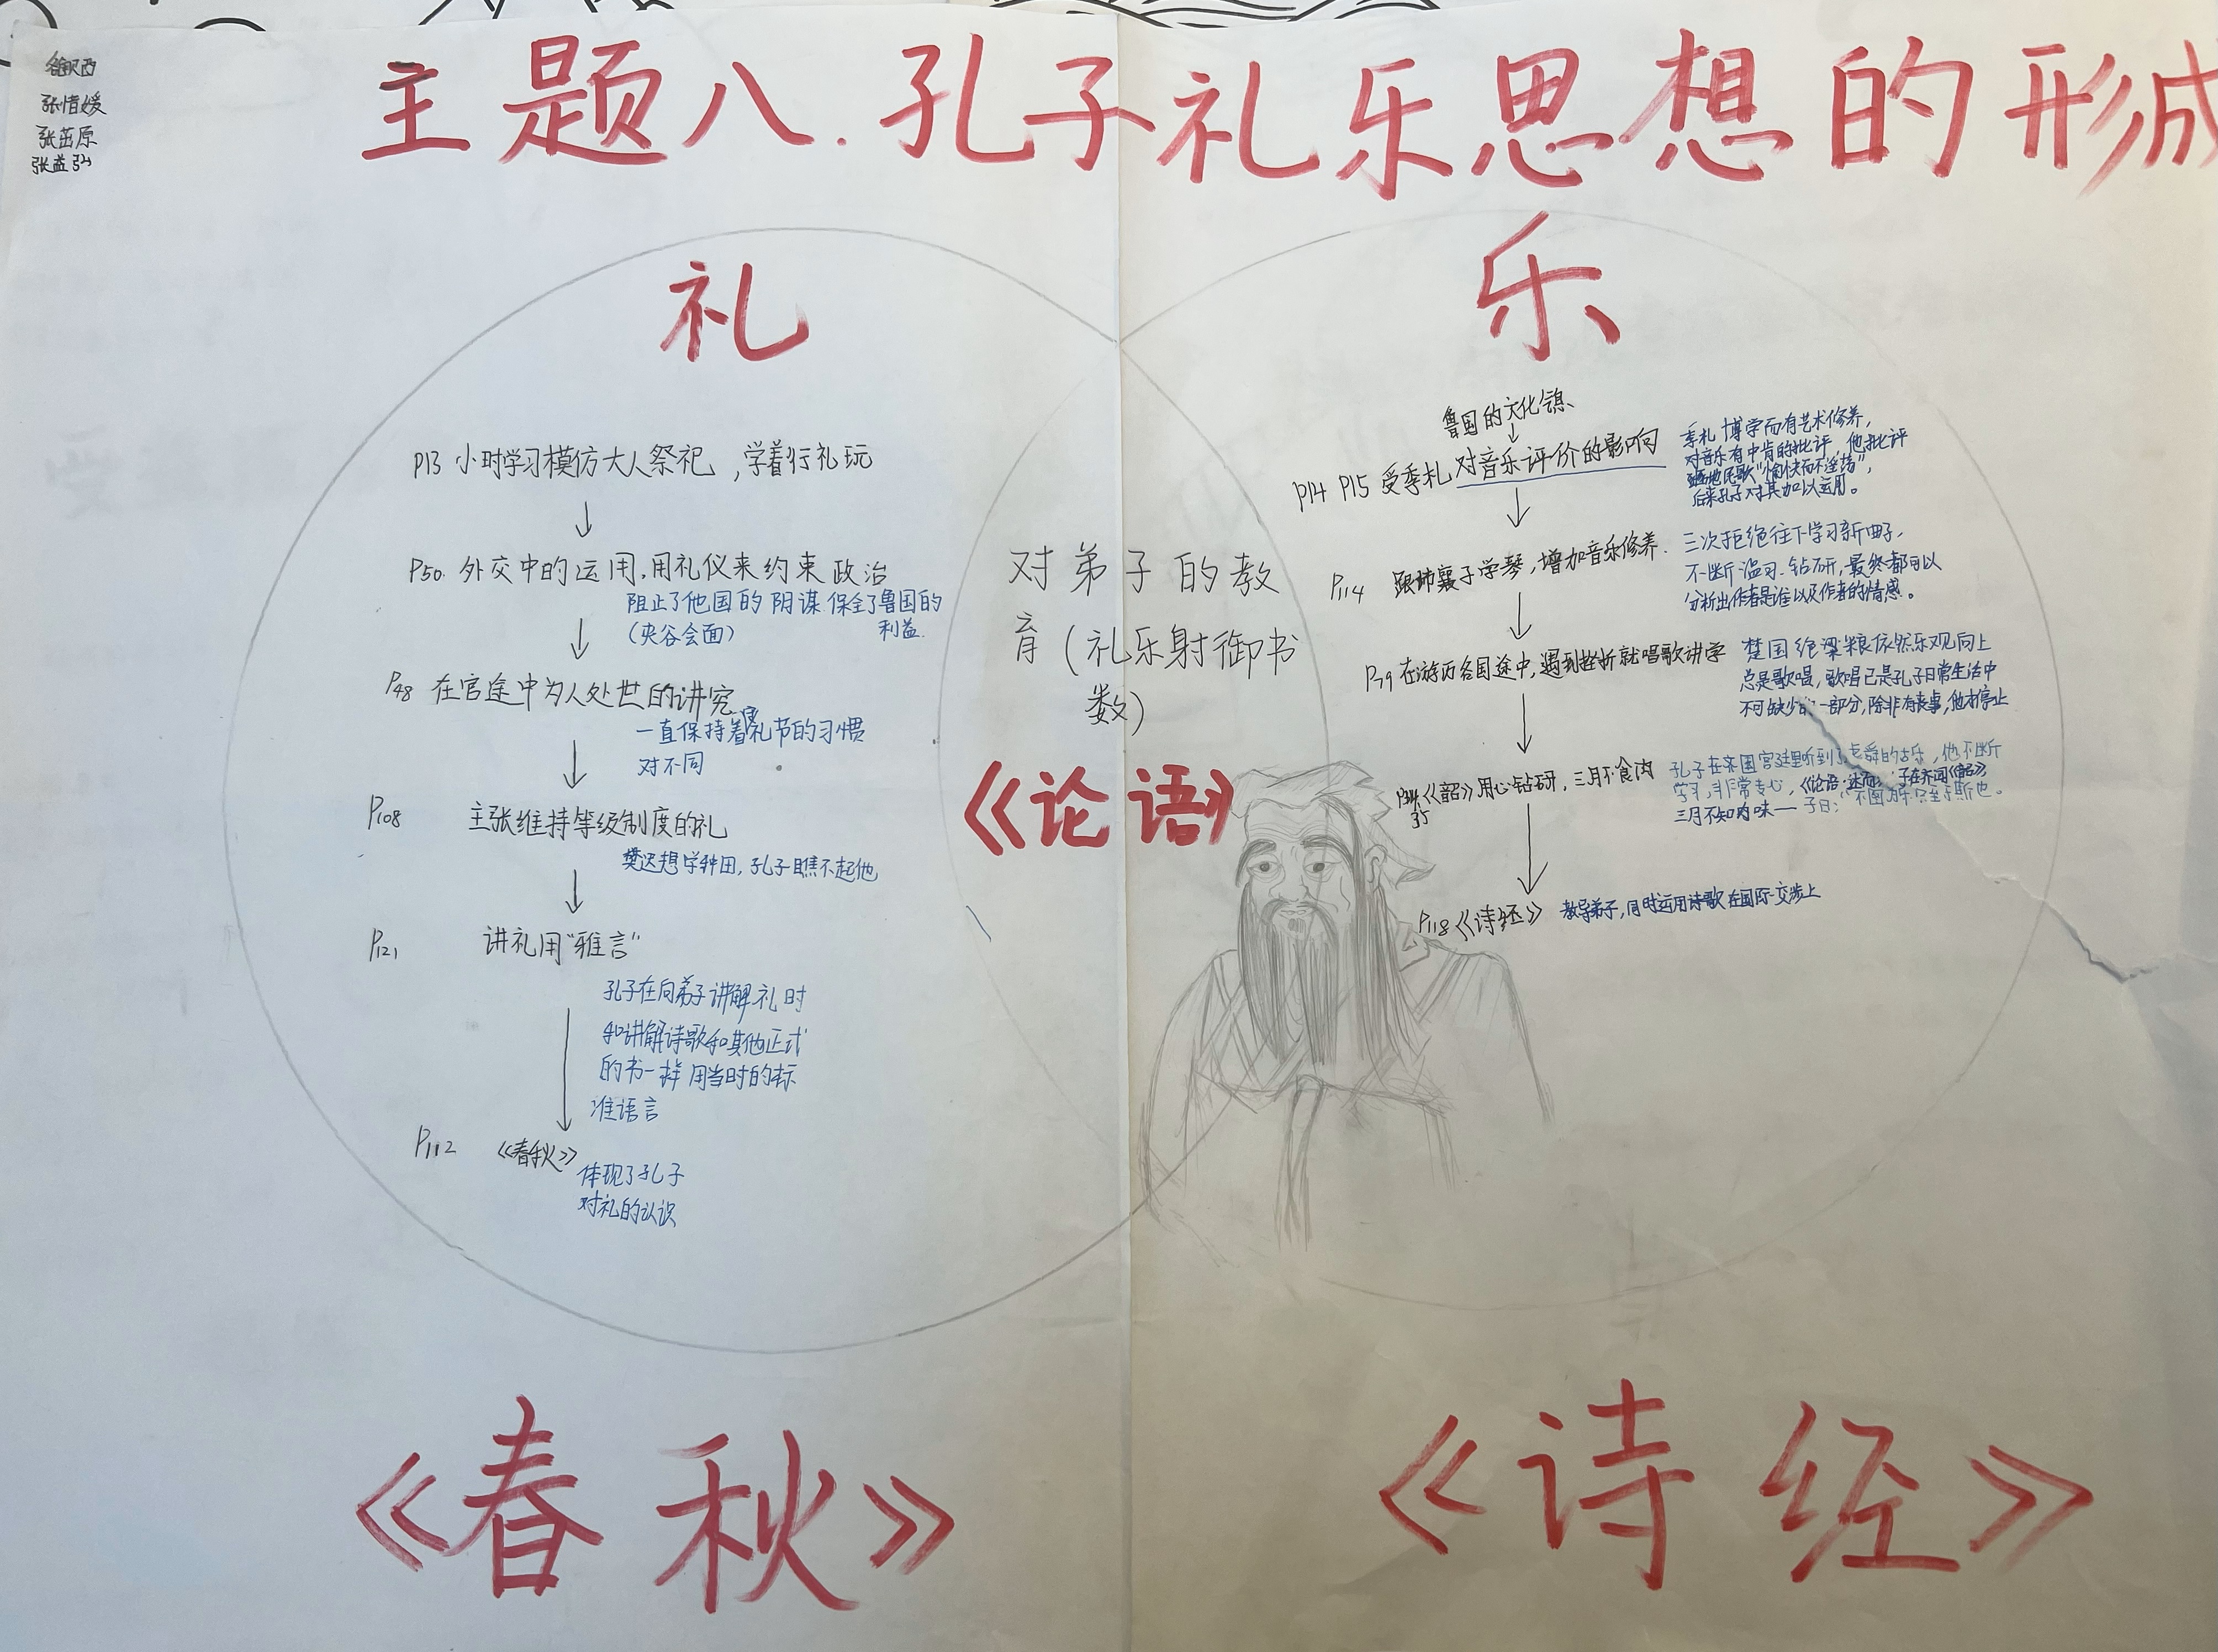 张惜媛
张茁原
张益弘
主题八.孔子礼乐思想的形成
礼
P13 小时学习模仿大人祭祀,学着行礼玩
P50. 外交中的运用,用礼仪来约束政治
阻止了他国的阴谋 保全了鲁国的
(夹谷会面) 利益.
P48 在官途中为人处世的讲究
一直保持着礼节的习惯
对不同
P108 主张维持等级制度的礼
樊迟想学种田,孔子瞧不起他
P121 讲礼用“雅言”
孔子在向弟子讲解礼时
和讲解诗歌和其他正式
的书一样 用当时的标
准语言
P112 《春秋》
体现了孔子
对礼的认识
《春秋》
对弟子的教
育(礼乐射御书
数)
《论语》
乐
鲁国的文化
P14 P15 受季札对音乐评价的影响
季札博学而有艺术修养,
对音乐有中肯的批评,他批评
地民歌“愉快而不淫荡”,
后来孔子对其加以运用。
P114 跟师襄子学琴,增加音乐修养.
三次拒绝往下学习新曲子,
不断温习.钻研,最终都可以
分析出作者是谁以及作者的情感。
P79 在游历各国途中,遇到挫折就唱歌讲学
楚国绝粱粮依然乐观向上
总是歌唱,歌唱已是孔子日常生活中
不可缺少的一部分,除非有丧事,他才停止
《韶》用心钻研,三月不食肉
35
孔子在齐国宫廷里听到了虞舜的古乐,他不断
学习,非常专心,《论语·述而》:子在齐闻《韶》
三月不知肉味——子曰:“不图为乐之至于斯也。
P118《诗经》 教导弟子,同时运用诗歌在国际交涉上
《诗经》